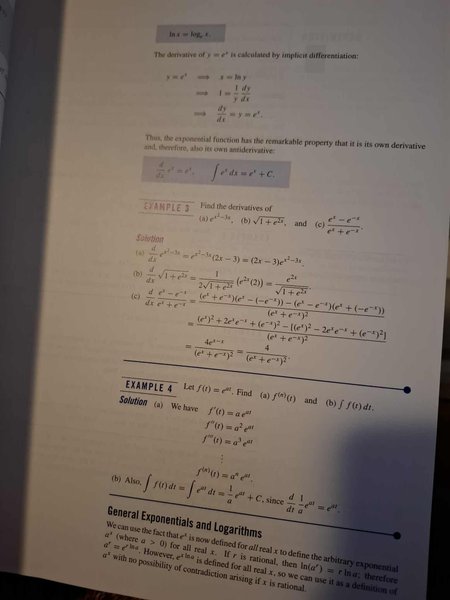 ln x = logₑ x.
The derivative of y = eˣ is calculated by implicit differentiation:
y = eˣ ⟹ x = ln y
⟹ 1 = 1/y dy/dx
⟹ dy/dx = y = eˣ.
Thus, the exponential function has the remarkable property that it is its own derivative
and, therefore, also its own antiderivative:
d/dx eˣ = eˣ, ∫ eˣ dx = eˣ + C.
EXAMPLE 3 Find the derivatives of
(a) e^(x²−3x), (b) √(1 + e^(2x)), and (c) (eˣ − e^(−x))/(eˣ + e^(−x)).
Solution
(a) d/dx e^(x²−3x) = e^(x²−3x)(2x − 3) = (2x − 3)e^(x²−3x).
(b) d/dx √(1 + e^(2x)) = 1/(2√(1 + e^(2x))) (e^(2x)(2)) = e^(2x)/√(1 + e^(2x)).
(c) d/dx (eˣ − e^(−x))/(eˣ + e^(−x)) = ((eˣ + e^(−x))(eˣ − (−e^(−x))) − (eˣ − e^(−x))(eˣ + (−e^(−x))))/(eˣ + e^(−x))²
= ((eˣ)² + 2eˣe^(−x) + (e^(−x))² − [(eˣ)² − 2eˣe^(−x) + (e^(−x))²])/(eˣ + e^(−x))²
= 4e^(x−x)/(eˣ + e^(−x))² = 4/(eˣ + e^(−x))².
EXAMPLE 4 Let f(t) = e^(at). Find (a) f⁽ⁿ⁾(t) and (b) ∫ f(t) dt.
Solution (a) We have f′(t) = a e^(at)
f″(t) = a² e^(at)
f‴(t) = a³ e^(at)
⋮
f⁽ⁿ⁾(t) = aⁿ e^(at).
(b) Also, ∫ f(t) dt = ∫ e^(at) dt = 1/a e^(at) + C, since d/dt 1/a e^(at) = e^(at).
General Exponentials and Logarithms
We can use the fact that eˣ is now defined for all real x to define the arbitrary exponential
aˣ (where a > 0) for all real x. If r is rational, then ln(aʳ) = r ln a; therefore
aʳ = e^(r ln a). However, e^(x ln a) is defined for all real x, so we can use it as a definition of
aˣ with no possibility of contradiction arising if x is rational.